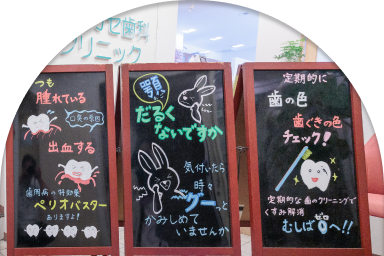 セ歯科
クリニック
いつも
腫れている
口臭の原因
出血する
歯周病の特効薬
ペリオバスター
ありますよ!
顎
だるく
ないですか
気付いたら
時々
グーっと
かみしめて
いませんか
定期的に
歯の色
歯ぐきの色
チェック!
定期的な歯のクリーニングで
くすみ解消
むしば0へ!!
ゼロ